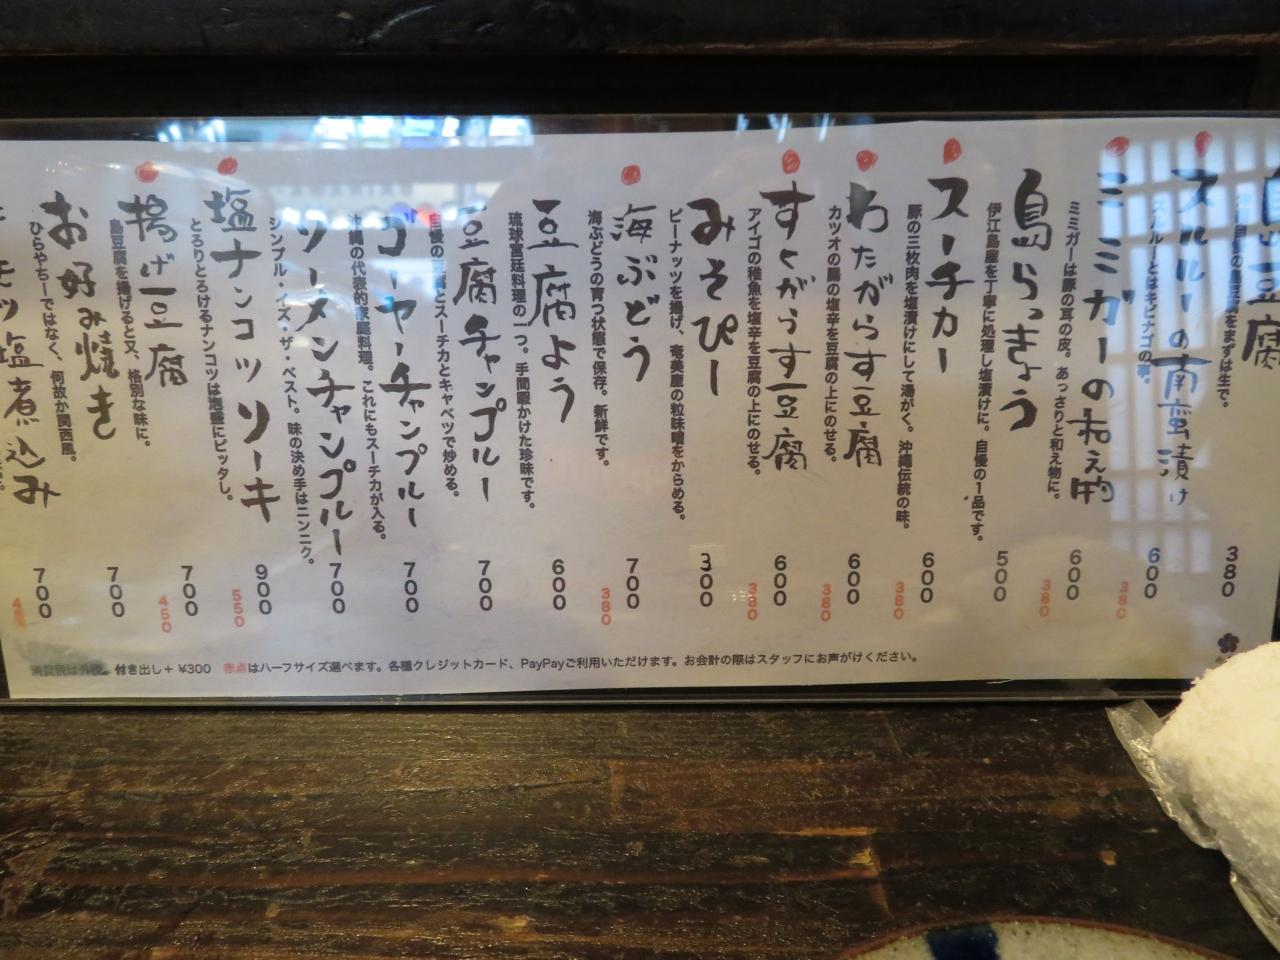 豆腐
自慢の島豆腐をまずは生で。
380
スルルーの南蛮漬け
スルルーとはキビナゴの事。
600
380
ミミガーの和え物
ミミガーは豚の耳の皮。あっさりと和え物に。
600
380
島らっきょう
伊江島産を丁寧に処理し塩漬けに。自慢の1品です。
500
スーチカー
豚の三枚肉を塩漬けにして湯がく。沖縄伝統の味。
600
380
わたがらす豆腐
カツオの腸の塩辛を豆腐の上にのせる。
600
380
すくがらす豆腐
アイゴの稚魚を塩辛を豆腐の上にのせる。
600
380
みそぴー
ピーナッツを揚げ、奄美産の粒味噌をからめる。
300
海ぶどう
海ぶどうの育つ状態で保存。新鮮です。
700
380
豆腐よう
琉球宮廷料理の一つ。手間暇かけた珍味です。
600
豆腐チャンプルー
自慢の豆腐とスーチカとキャベツで炒める。
700
ゴーヤーチャンプルー
沖縄の代表的家庭料理。これにもスーチカが入る。
700
ソーメンチャンプルー
シンプル・イズ・ザ・ベスト。味の決め手はニンニク。
700
塩ナンコツソーキ
とろりとろけるナンコツは泡盛にピッタシ。
900
550
揚げ豆腐
島豆腐を揚げると又、格別な味に。
700
450
お好み焼き
ひらやちーではなく、何故か関西風。
700
モツ塩煮込み
700
消費税は外税。付き出し+¥300 赤点はハーフサイズ選べます。各種クレジットカード、PayPayご利用いただけます。お会計の際はスタッフにお声がけください。